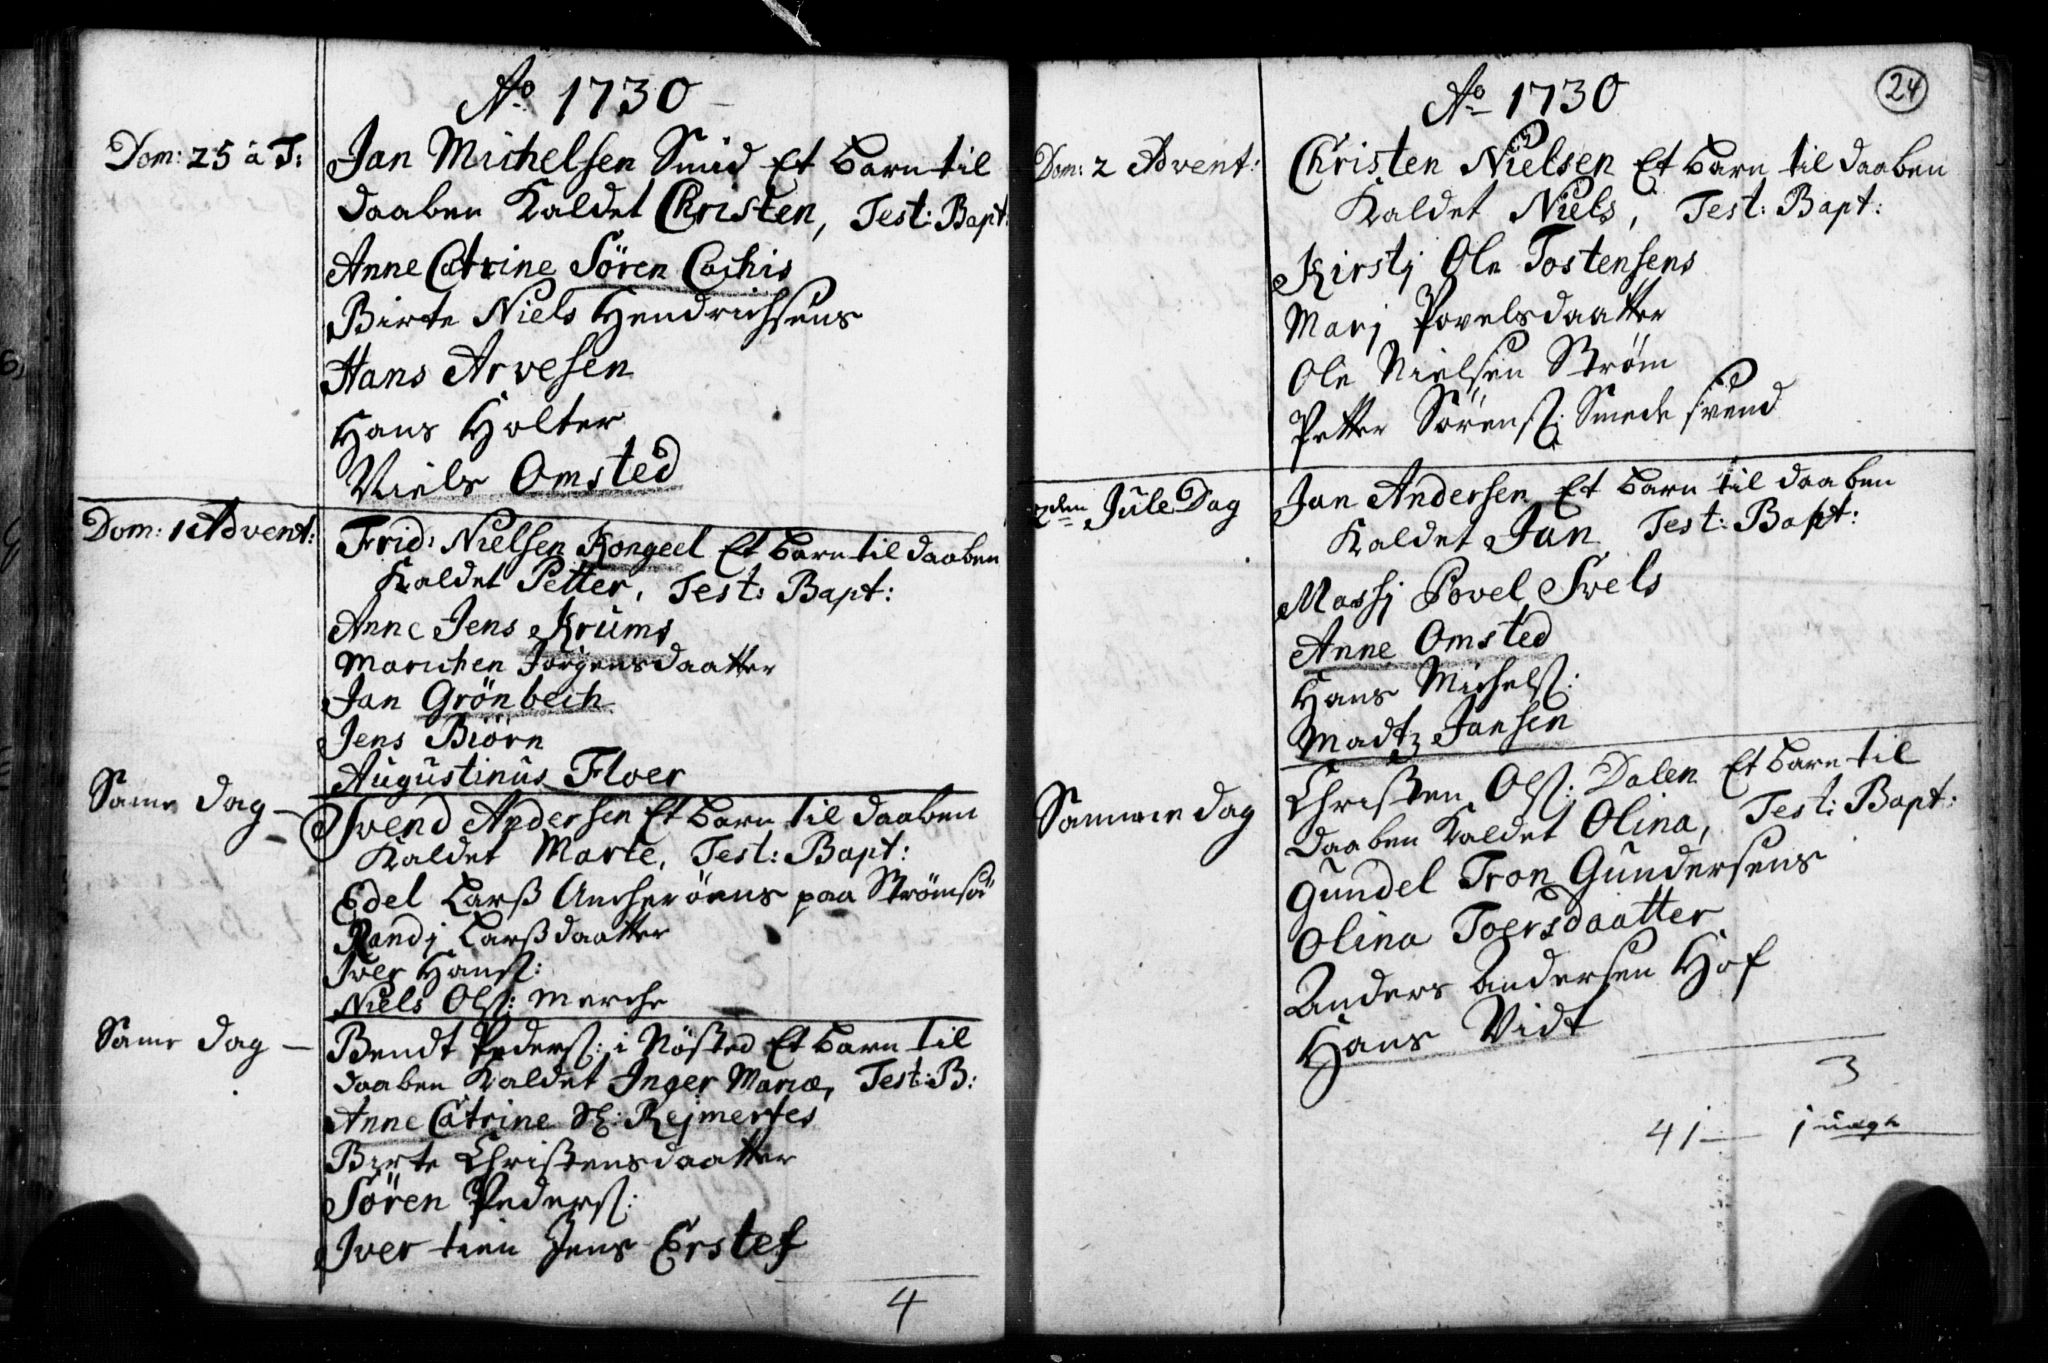 Ao 1730
Dom: 25 a T: Jan Michelsen Smid Et barn til
daaben Kaldet Christen, Test: Bapt:
Anne Catrine Sören Cachis
Birte Niels Hendrichsens
Hans Arvesen
Hans Holter
Niels Omsted
Dom: 1 Advent: Frid: Nielsen Kongeel Et barn til daaben
Kaldet Petter, Test: Bapt:
Anne Jens Krums
Marichen Jörgensdaatter
Jan Grönbech
Jens Biörn
Augustinus Floer
Same dag — Svend Andersen Et barn til daaben
Kaldet Marte, Test: Bapt:
Edel Larß paa Strömsö
Randj Larßdaatter
Iver Hanß:
Niels Olß: Merche
Same dag — Bendt Pederß: i Nösted Et barn til
daaben Kaldet Inger Maria, Test: B:
Anne Catrine Sl: Rejmertes
Birte Christensdaatter
Sören Pederß:
Iver tien Jens Erstef
4
24
Ao 1730
Dom: 2 Advent: Christen Nielsen Et barn til daaben
Kaldet Niels, Test: Bapt:
Kirstj Ole Tostensens
Marj Povelsdaatter
Ole Nielsen Ström
Petter Sörenß: Smede svend
2den Jule Dag Jan Andersen Et barn til daaben
Kaldet Jan Test: Bapt:
Mashj Povel Svels
Anne Omsted
Hans Michelß:
Madtz Jansen
Samme dag Christen Olß: Dalen Et barn til
daaben Kaldet Olina, Test: Bapt:
Gundel Tron Gundersens
Olina Toersdaatter
Anders Andersen Hof
Hans Vidt
3
41 — j uægte